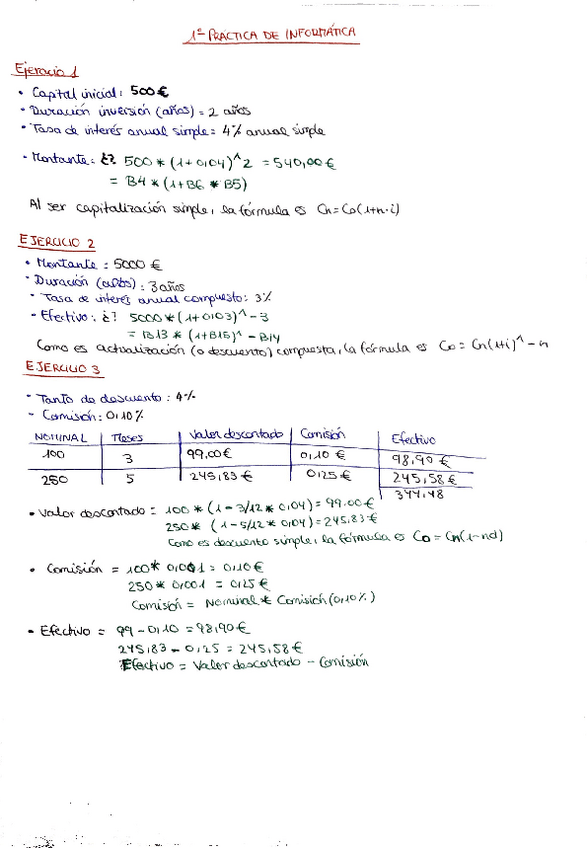 1º PRÁCTICA DE INFORMÁTICA
Ejercicio 1
• Capital inicial: 500€
• Duración inversión (años) = 2 años
• Tasa de interés anual simple = 4% anual simple
• Montante: ¿? 500 * (1+0,04)^2 = 540,00€
= B4 * (1+B6 * B5)
Al ser capitalización simple, la fórmula es Cn=Co(1+n·i)
EJERCICIO 2
• Montante: 5000 €
• Duración (años): 3 años
• Tasa de interés anual compuesto: 3%
- Efectivo: ¿? 5000*(1+0,03)^-3
= B13 * (1+B15)^-B14
Como es actualización (o descuento) compuesta, la fórmula es Co = Cn(1+i)^-n
EJERCICIO 3
• Tanto de descuento: 4%
- Comisión: 0,10%
NOMINAL Meses Valor descontado Comisión Efectivo
100 3 99,00€ 0,10 € 98,90 €
250 5 245,83 € 0,25 € 245,58 €
344,48
• Valor descontado = 100 * (1 - 3/12 * 0,04) = 99.00€
250 * (1 - 5/12 * 0,04) = 245,83 €
Como es descuento simple, la fórmula es Co = Cn(1-nd)
• Comisión = 100 * 0,001 = 0,10€
250 * 0,001 = 0,25€
Comisión = Nominal * Comisión (0,10%)
• Efectivo = 99 - 0,10 = 98,90€
245,83 - 0,25 = 245,58€
Efectivo = Valor descontado - Comisión